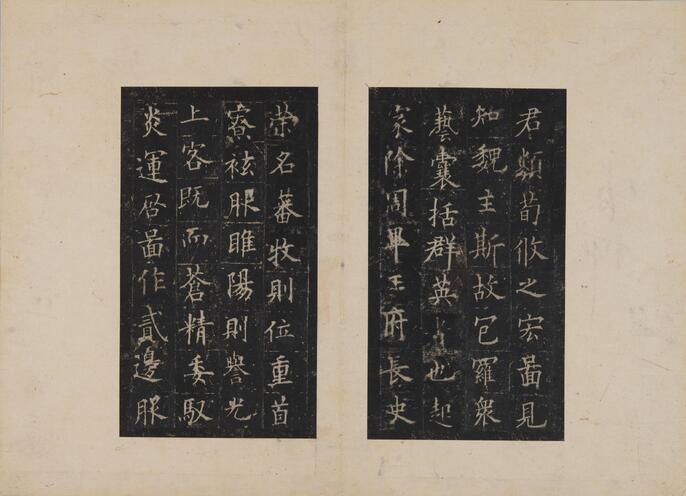 君類荀攸之宏啚見
知魏主斯故包羅衆
藝囊括群英者也起
家除周畢王府長史
榮名蕃牧則位重首
寮袨服睢陽則譽光
上客既而蒼精委馭
炎運啓啚作貳邊服